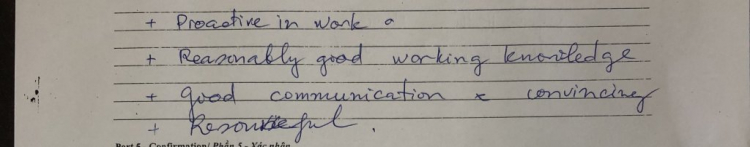 + Proactive in work
+ Reasonably good working knowledge
+ good communication & convincing
+ Resourceful.
Part 5 - Confirmation/ Phần 5 - Xác nhận